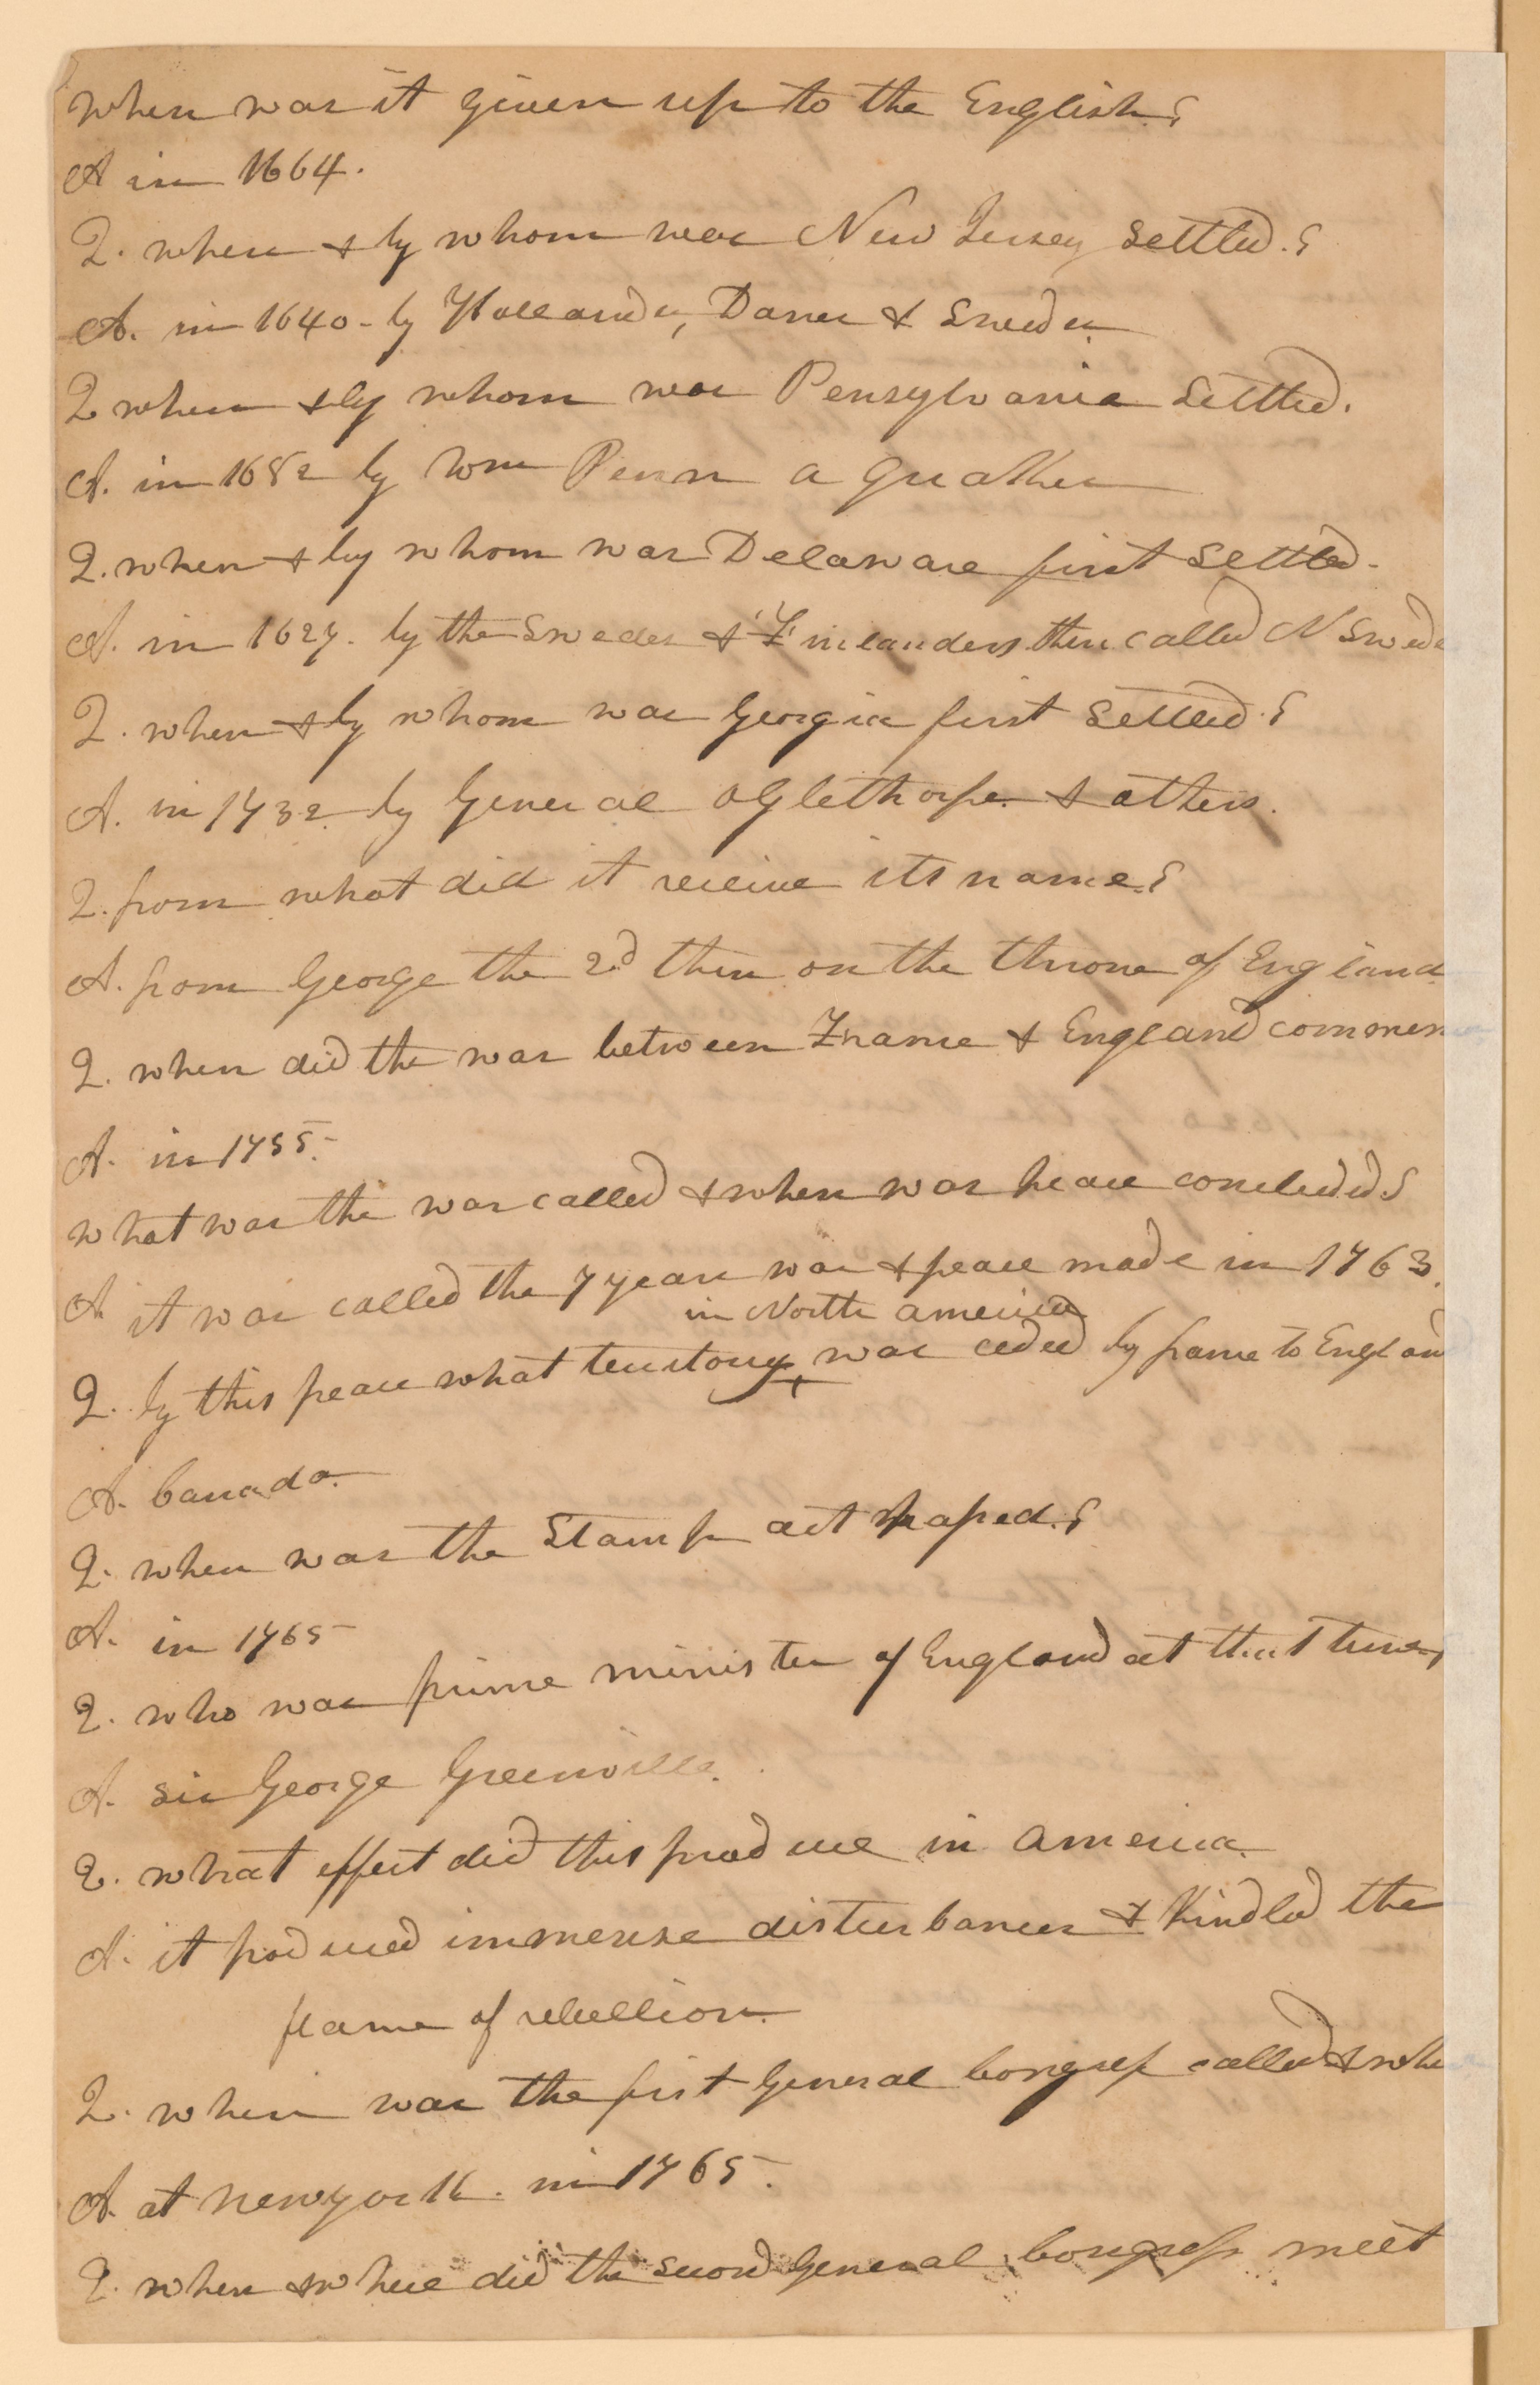 when was it given up to the English?
A in 1664.
Q. when & by whom was New Jersey settled.?
A. in 1640 - by Hollanders, Danes & Swedes
Q when & by whom was Pensylvania settled.
A. in 1682 by Wm Penn a Quaker
Q. when & by whom was Delaware first settled.
A. in 1627. by the Swedes & Finlanders then called N Swede
Q. when & by whom was Georgia first settled.?
A. in 1732 by General Oglethorpe. & others.
Q. from what did it receive its name.?
A. from George the 2d then on the throne of England
Q. when did the war between France & England commen
A. in 1755.
what was the war called & when was peace concluded?
A it was called the 7 years war & peace made in 1763.
in North america
Q. by this peace what territory was ceded by france to England
A. Canada.
Q. when was the Stamp act passed.?
A. in 1765
Q. who was prime minister of England at that time?
A. sir George Greenville.
Q. what effect did this produce in america.
A. it produced immense disturbances & kindled the
flame of rebellion.
Q. when was the first General Congress called & whe
A. at newyork. in 1765.
Q. when & where did the second General Congress meet